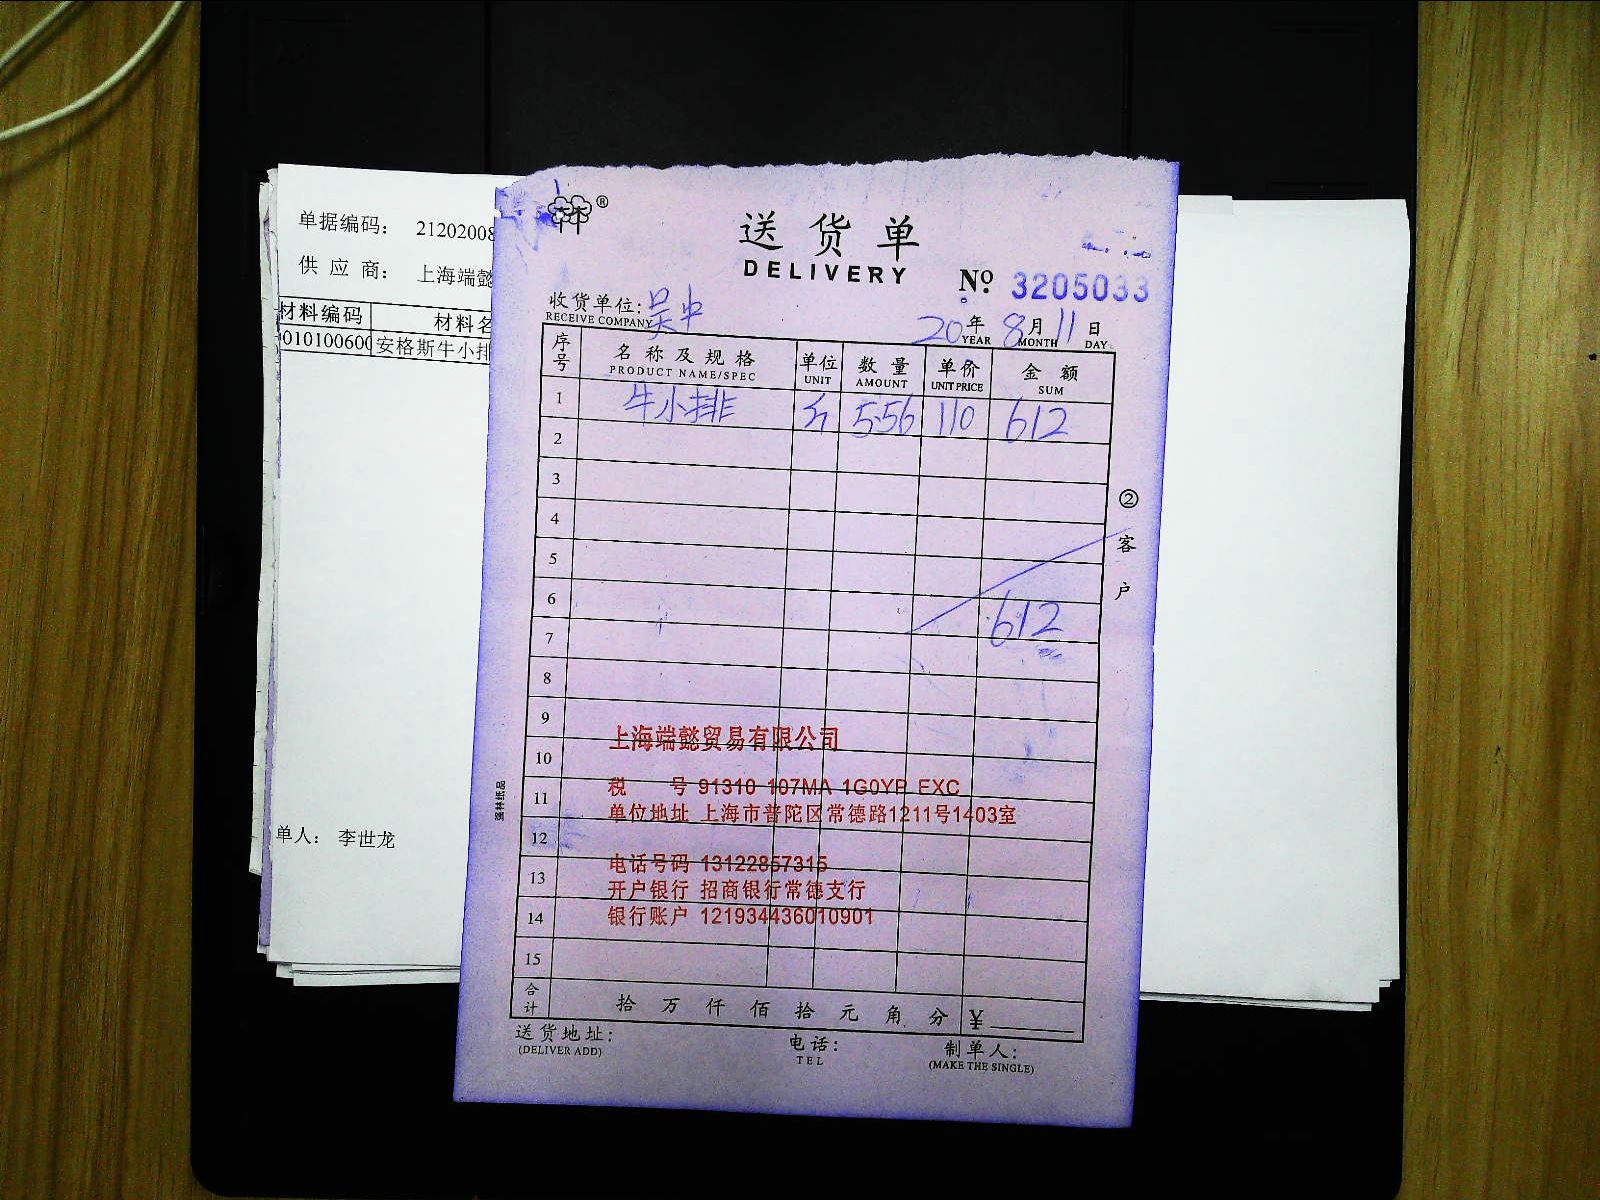 单据编码： 21202008
供 应 商： 上海端懿
材料编码 材料名
010100600 安格斯牛小排
单人： 李世龙
®
送货单
DELIVERY
No 3205033
收货单位：吴中
RECEIVE COMPANY
20年 8月 11日
YEAR MONTH DAY
序号 名称及规格 单位 数量 单价 金额
PRODUCT NAME/SPEC UNIT AMOUNT UNIT PRICE SUM
1 牛小排 斤 5.56 110 612
2
3
4
5
6
612
7
8
9
上海端懿贸易有限公司
10
税 号 91310 107MA 1G0YP EXC
11
单位地址 上海市普陀区常德路1211号1403室
12
电话号码 13122857315
13
开户银行 招商银行常德支行
14
银行账户 121934436010901
15
合计 拾 万 仟 佰 拾 元 角 分 ¥
送货地址： 电话： 制单人：
(DELIVER ADD) TEL (MAKE THE SINGLE)
② 客户
强林纸品